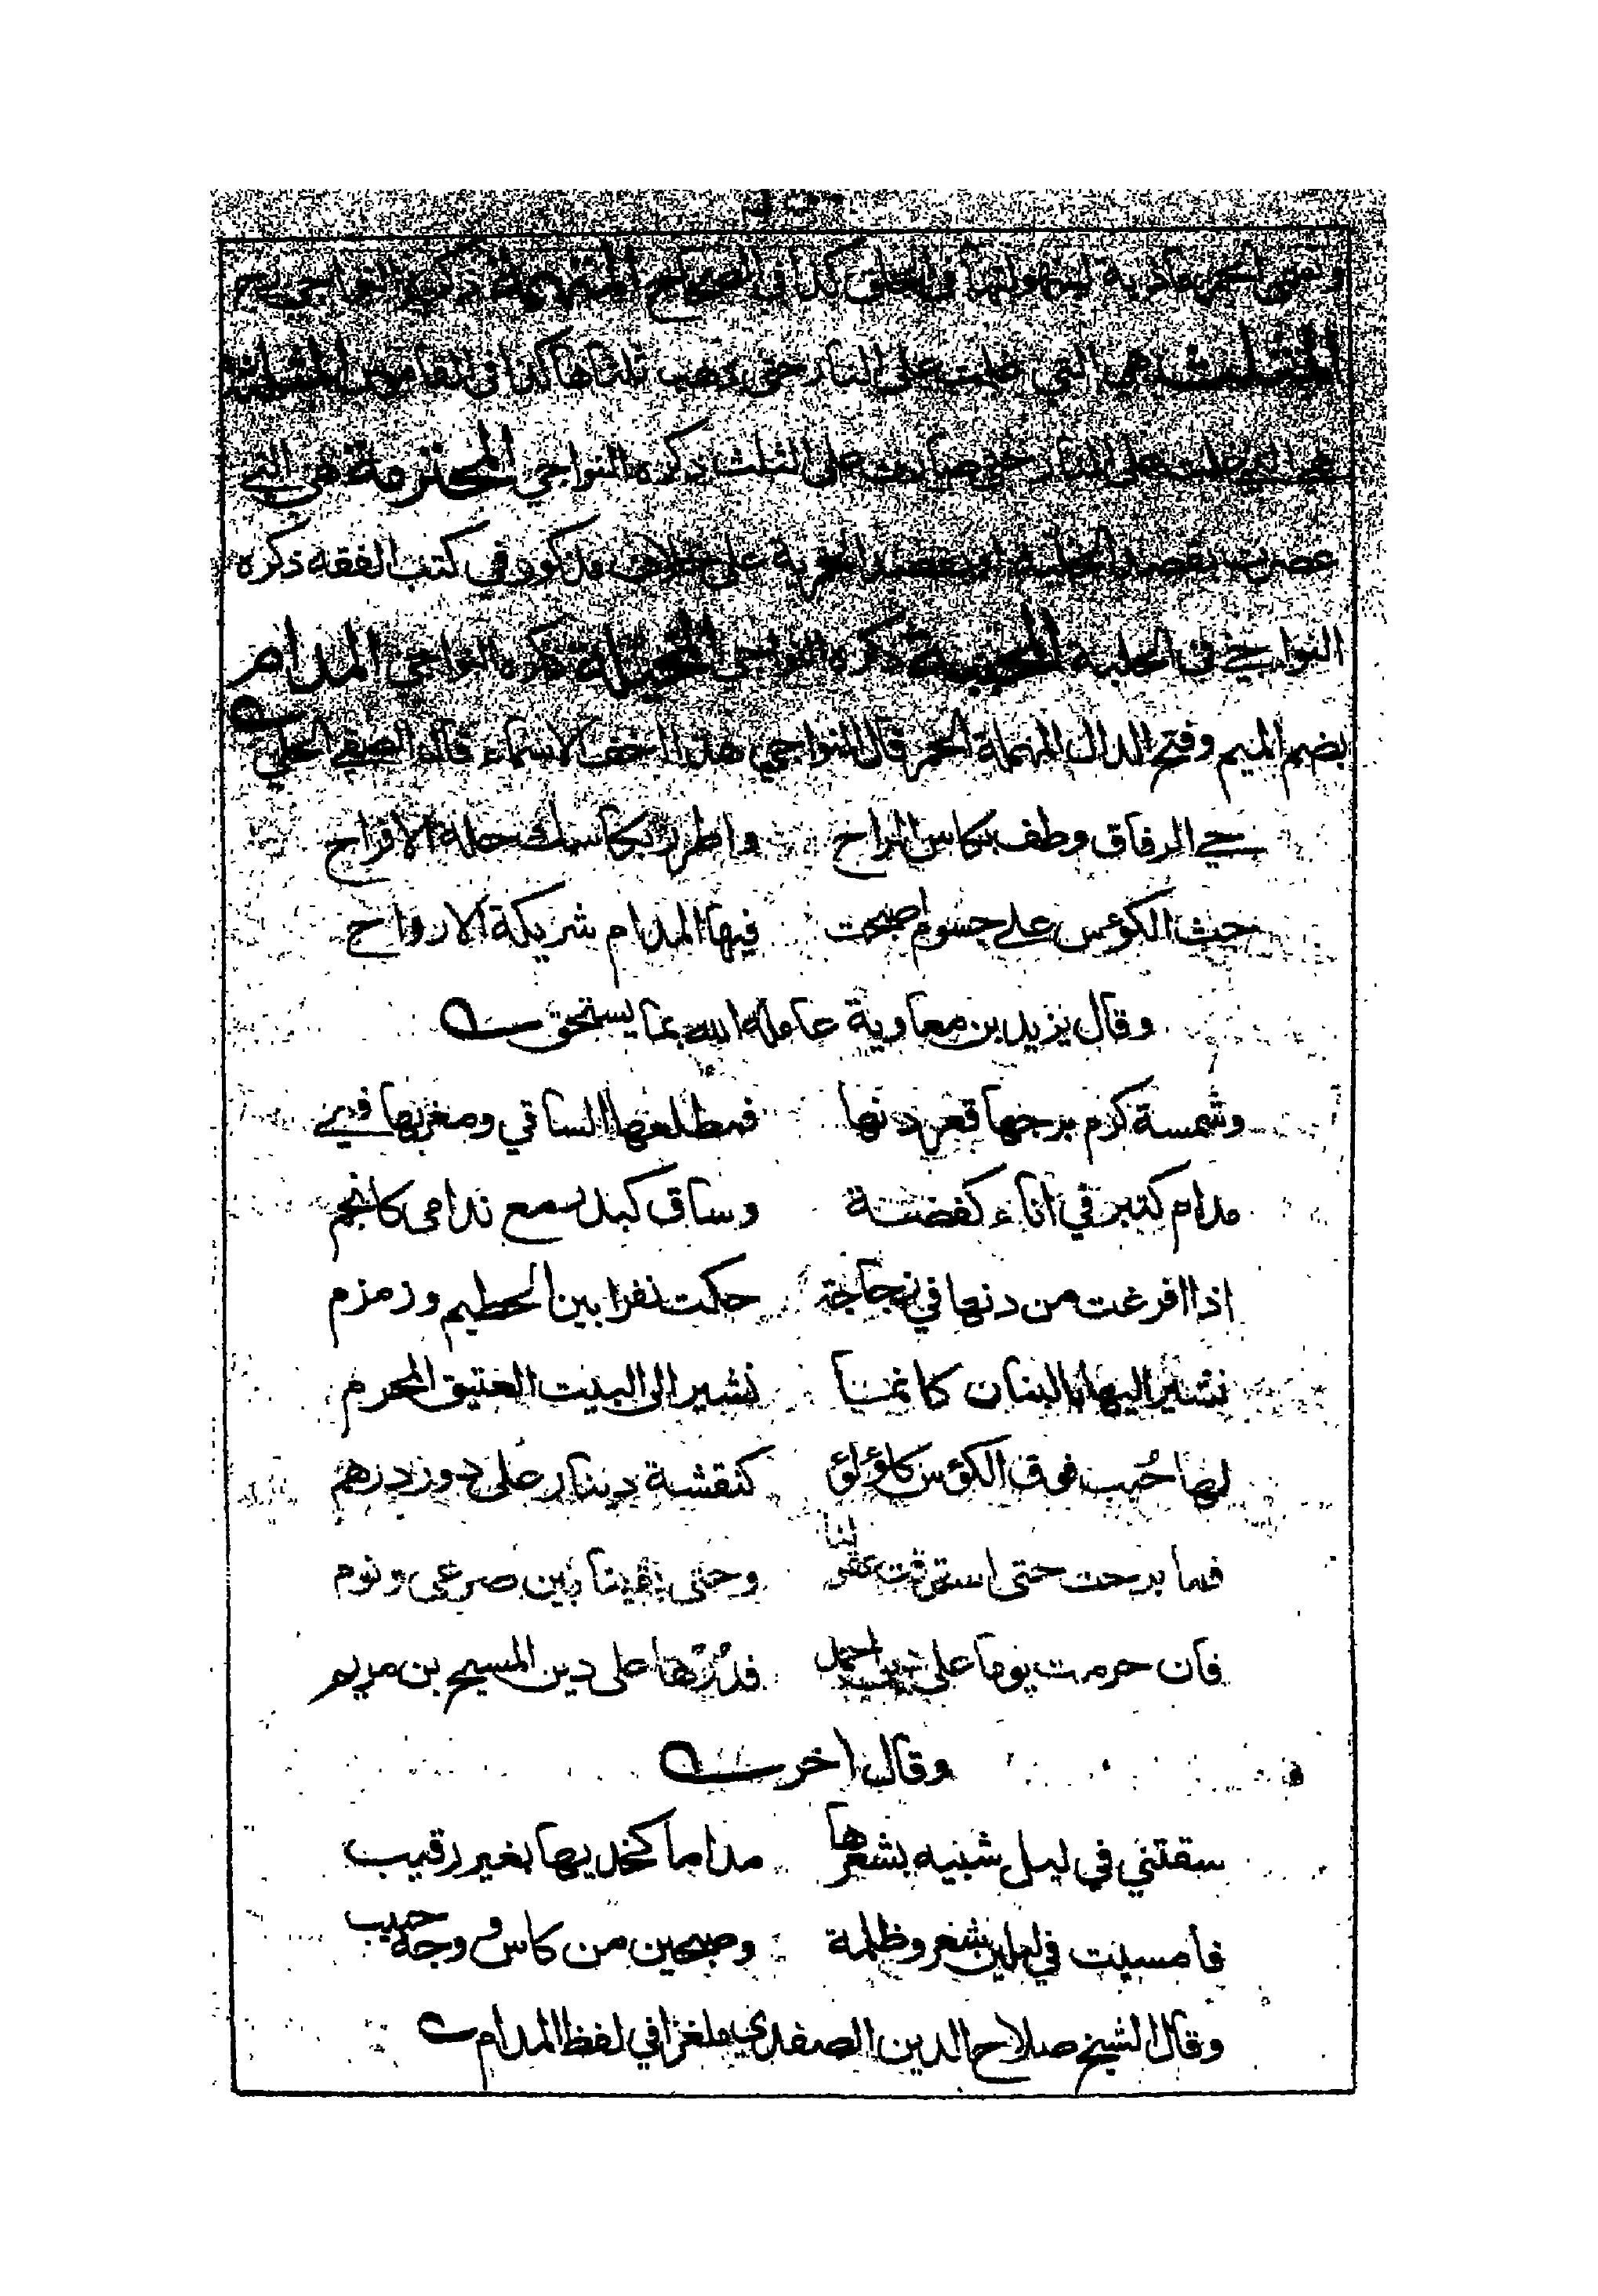 وتسمى الخمر ماذية لسهولتها في الحلق كذا في الصحاح ذكره النواجي
المثلث هي التي طبخت على النار حتى ذهب ثلثاها كذا في القاموس
هي التي على النار حتى صارت على الثلث ذكره النواجي المحترمة هي التي
عصرت بقصد الخلية او بقصد الخمرية على خلاف مذكور في كتب الفقه ذكره
النواجي في الحلبة ذكره النواجي ذكره النواجي المدام
بضم الميم وفتح الدال المهملة الخمر قال النواجي هذا اخف الاسماء قال الصفي الحلي
حي الرفاق وطف بكاس الراح واطرز بكاسك حلة الافراح
حث الكوس على جسوم اصبحت فيها المدام شريكة الارواح
وقال يزيد بن معاوية عامله الله بما يستحق
وشمسة كرم برجها قعر دنها فمطلعها الساقي ومغربها في
مدام كتبر في اناء كفضة وساق كبدر مع ندامى كانجم
اذا افرغت من دنها في زجاجة حكت نفرا بين الحطيم وزمزم
نشير اليها بالبنان كانما نشير الى البيت العتيق المحرم
لها حبب فوق الكؤس كاؤلؤ كنقشة دينار على دور درهم
فما برحت حتى استرقت عقولنا وحتى بقينا بين صرعى ونوم
فان حرمت يوما على دين احمد فدرها على دين المسيح بن مريم
وقال اخر
سقتني في ليل شبيه بشعرها مداما كخديها بغير رقيب
فامسيت في ليلين شعر وظلمة وصبحين من كاس ووجه حبيب
وقال الشيخ صلاح الدين الصفدي ملغزا في لفظ المدام